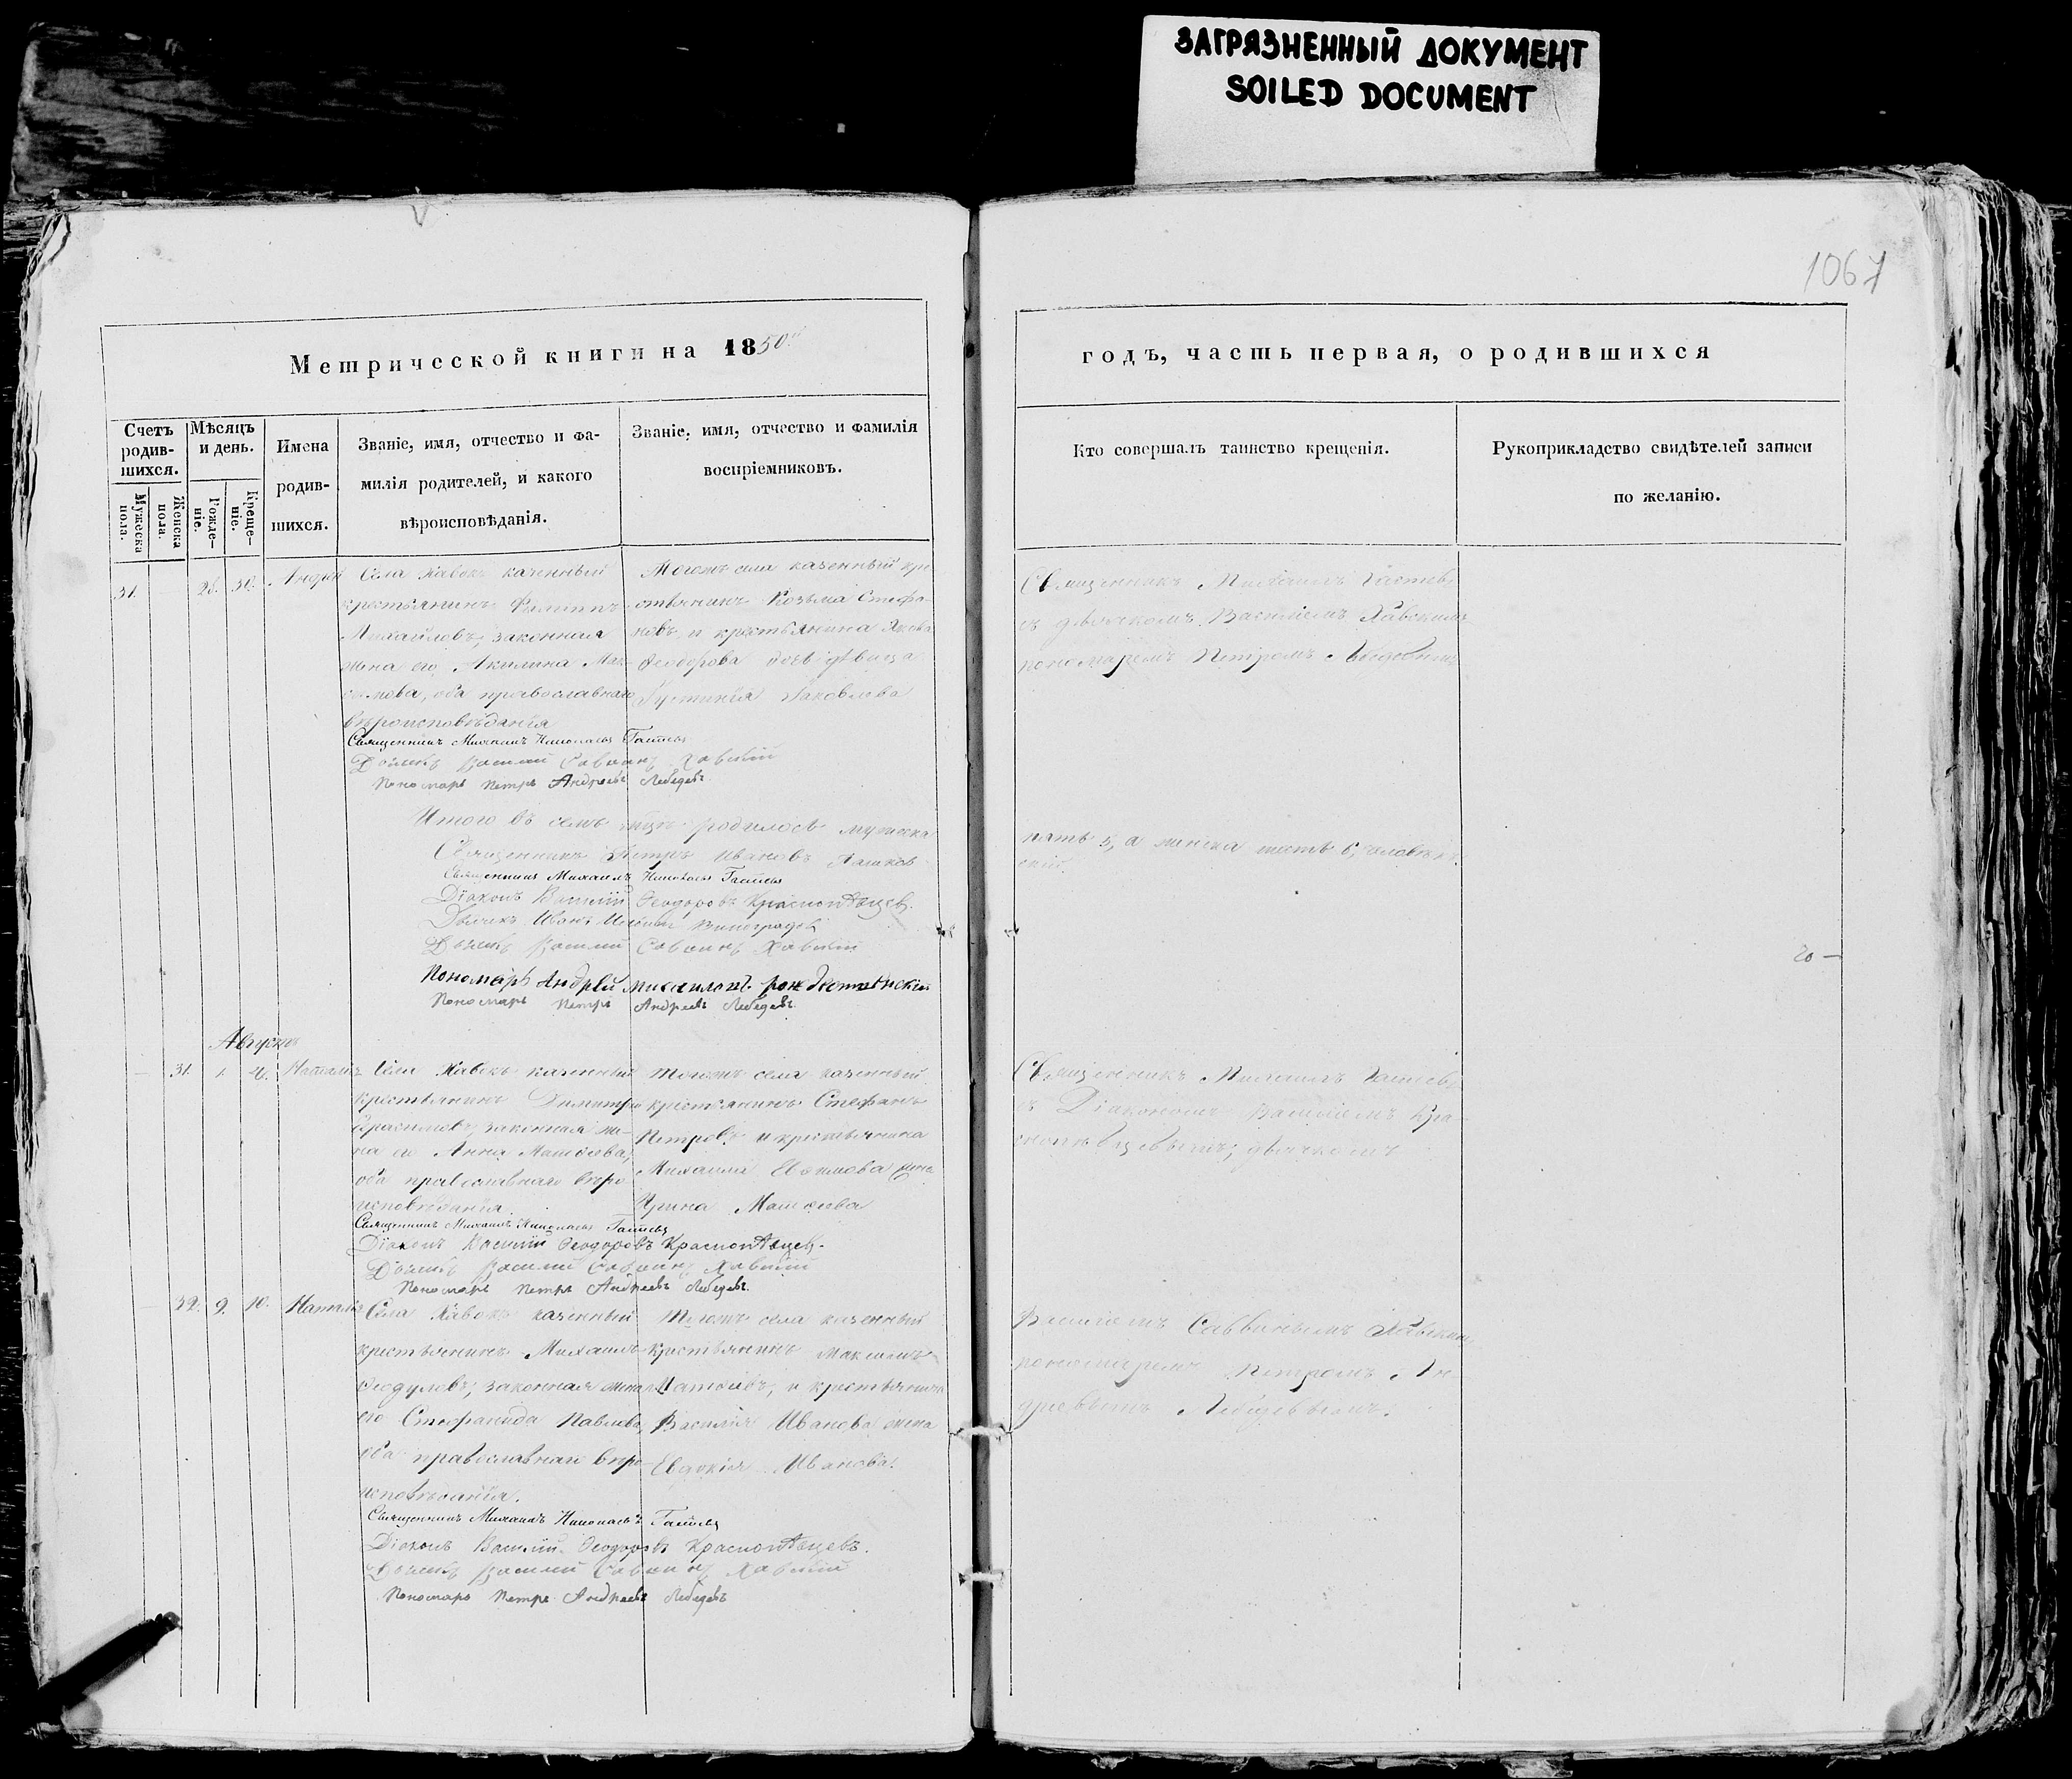 ЗАГРЯЗНЕННЫЙ ДОКУМЕНТ
SOILED DOCUMENT
1067
Метрической книги на 1850й
годъ, часть первая, о родившихся
Счетъ родив-шихся.
Мужеска пола.
Женска пола.
Мѣсяцъ и день.
Рожде-ніе.
Креще-ніе.
Имена
родив-
шихся.
Званіе, имя, отчество и фа-
милія родителей, и какого
вѣроисповѣданія.
Званіе, имя, отчество и фамилія
воспріемниковъ.
Кто совершалъ таинство крещенія.
Рукоприкладство свидѣтелей записи
по желанію.
31. 28. 30. Андрей
Села Хавокъ казенный
крестьянинъ Филиппъ
Михайловъ, законная
жена его Акилина Мак-
симова, оба православнаго
вѣроисповѣданія
Тогожъ села казенный кре
стьянинъ Козьма Стефа-
новъ и крестьянина Якова
Феодорова дочь дѣвица
Іустинія Яковлева
Священникъ Михаилъ
съ дьячкомъ Василіемъ Хавскимъ
пономаремъ Петромъ Лебедевымъ
Священникъ Михаилъ Николаевъ
Дьячекъ Василий Саввинъ Хавский
Пономарь Петръ Андреевъ Лебедевъ
Итого въ семъ родилось мужеска
пять 5, а женска шесть 6, человѣкъ
Священникъ Петръ Ивановъ
Священникъ Михаилъ Николаевъ
Діаконъ Василий Феодоровъ Краснопѣвцевъ.
Дьячекъ Иванъ Виноградовъ
Дьячекъ Василий Саввинъ Хавский
Пономарь Андрей Михаиловъ рождественский
Пономарь Петръ Андреевъ Лебедевъ.
20 —
Августъ
31. 1. Наталія
Села Хавокъ казенный
крестьянинъ Димитрій
Герасимовъ, законная же-
на его Анна Матѳеева,
оба православнаго вѣро
исповѣданія.
Тогожъ села казенный
крестьянинъ Стефанъ
Петровъ и крестьянина
Михаила Евѳимова жена
Ирина Матѳеева
Священникъ Михаилъ
съ Діакономъ Василіемъ Кра-
снопѣвцевымъ, дьячкомъ
Священникъ Михаилъ Николаевъ
Діаконъ Василий Феодоровъ Краснопѣвцевъ.
Дьячекъ Василий Саввинъ Хавский
Пономарь Петръ Андреевъ Лебедевъ.
32. 9. 10. Наталія
Села Хавокъ казенный
крестьянинъ Михаилъ
Феодуловъ, законная жена
его Стефанида Павлова,
оба православнаго вѣро-
исповѣданія.
Тогожъ села казенный
крестьянинъ Максимъ
Матѳеевъ, и крестьянина
Василія Иванова жена
Евдокія Иванова.
Василіемъ Саввинымъ Хавскимъ,
пономаремъ Петромъ Ан-
дреевымъ Лебедевымъ.
Священникъ Михаилъ Николаевъ
Діаконъ Василий Феодоровъ Краснопѣвцевъ.
Дьячекъ Василий Саввинъ Хавский
Пономарь Петръ Андреевъ Лебедевъ